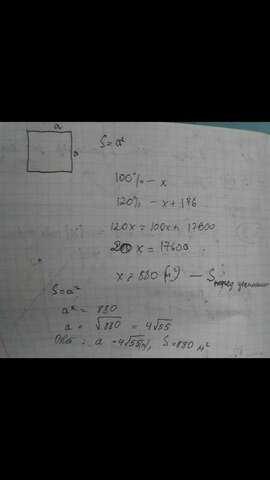 a
S=a²
a
100% – x
120% – x+176
120x = 100x+ 17600
20x = 17600
x = 880 (м²) – S
S=a²
a² = 880
a = √880 = 4√55
Отв: a = 4√55(м), S=880 м²